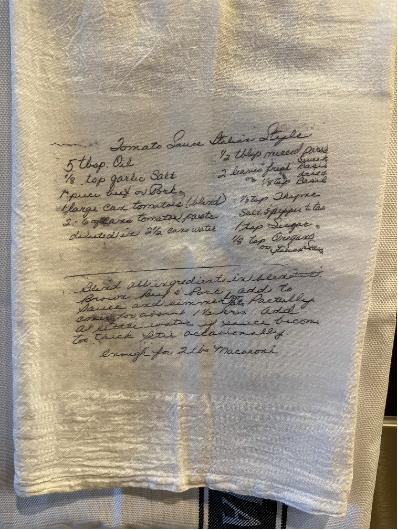 Tomato Sauce Italian Style
5 tbsp. Oil
1/8 tsp garlic Salt
1 piece beef or Pork
1 large can tomatoes (blend)
2-6 tomatoe paste
diluted in 2 1/2 cans water
1/2 tblsp minced
2 leaves fresh Basil
or 1/8 tsp Basil
1/8 tsp Thyme
Salt & pepper to
1 tsp Sugar
1/8 tsp Oregano
or
Blend all ingredients in
Brown Beef & Pork, add to
Sauce and simmer Partially
for around 1 1/2 hrs. add
a little water if sauce becom
too thick Stir occasionally.
enough for 2 lbs Macaroni